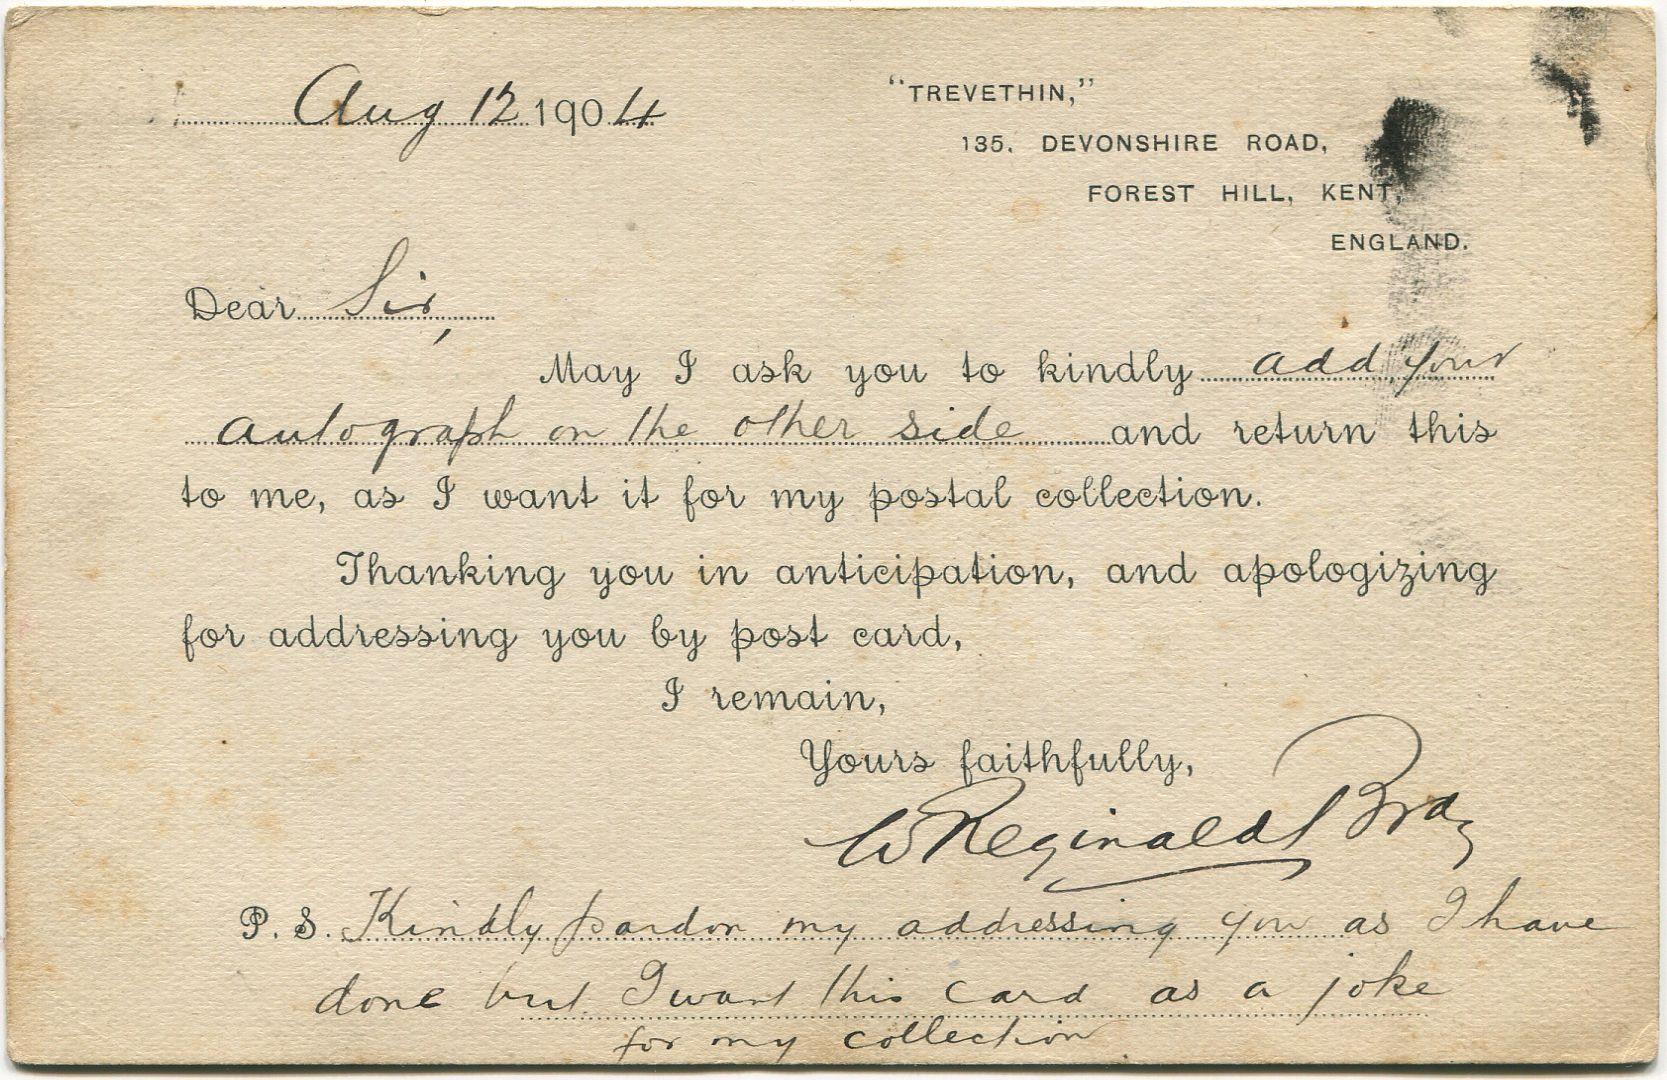 Aug 12 1904
"TREVETHIN,"
135, DEVONSHIRE ROAD,
FOREST HILL, KENT,
ENGLAND.
Dear Sir,
May I ask you to kindly add your
autograph on the other side and return this
to me, as I want it for my postal collection.
Thanking you in anticipation, and apologizing
for addressing you by post card,
I remain,
Yours faithfully,
W Reginald Bray
P. S. Kindly pardon my addressing you as I have
done but I want this card as a joke
for my collection